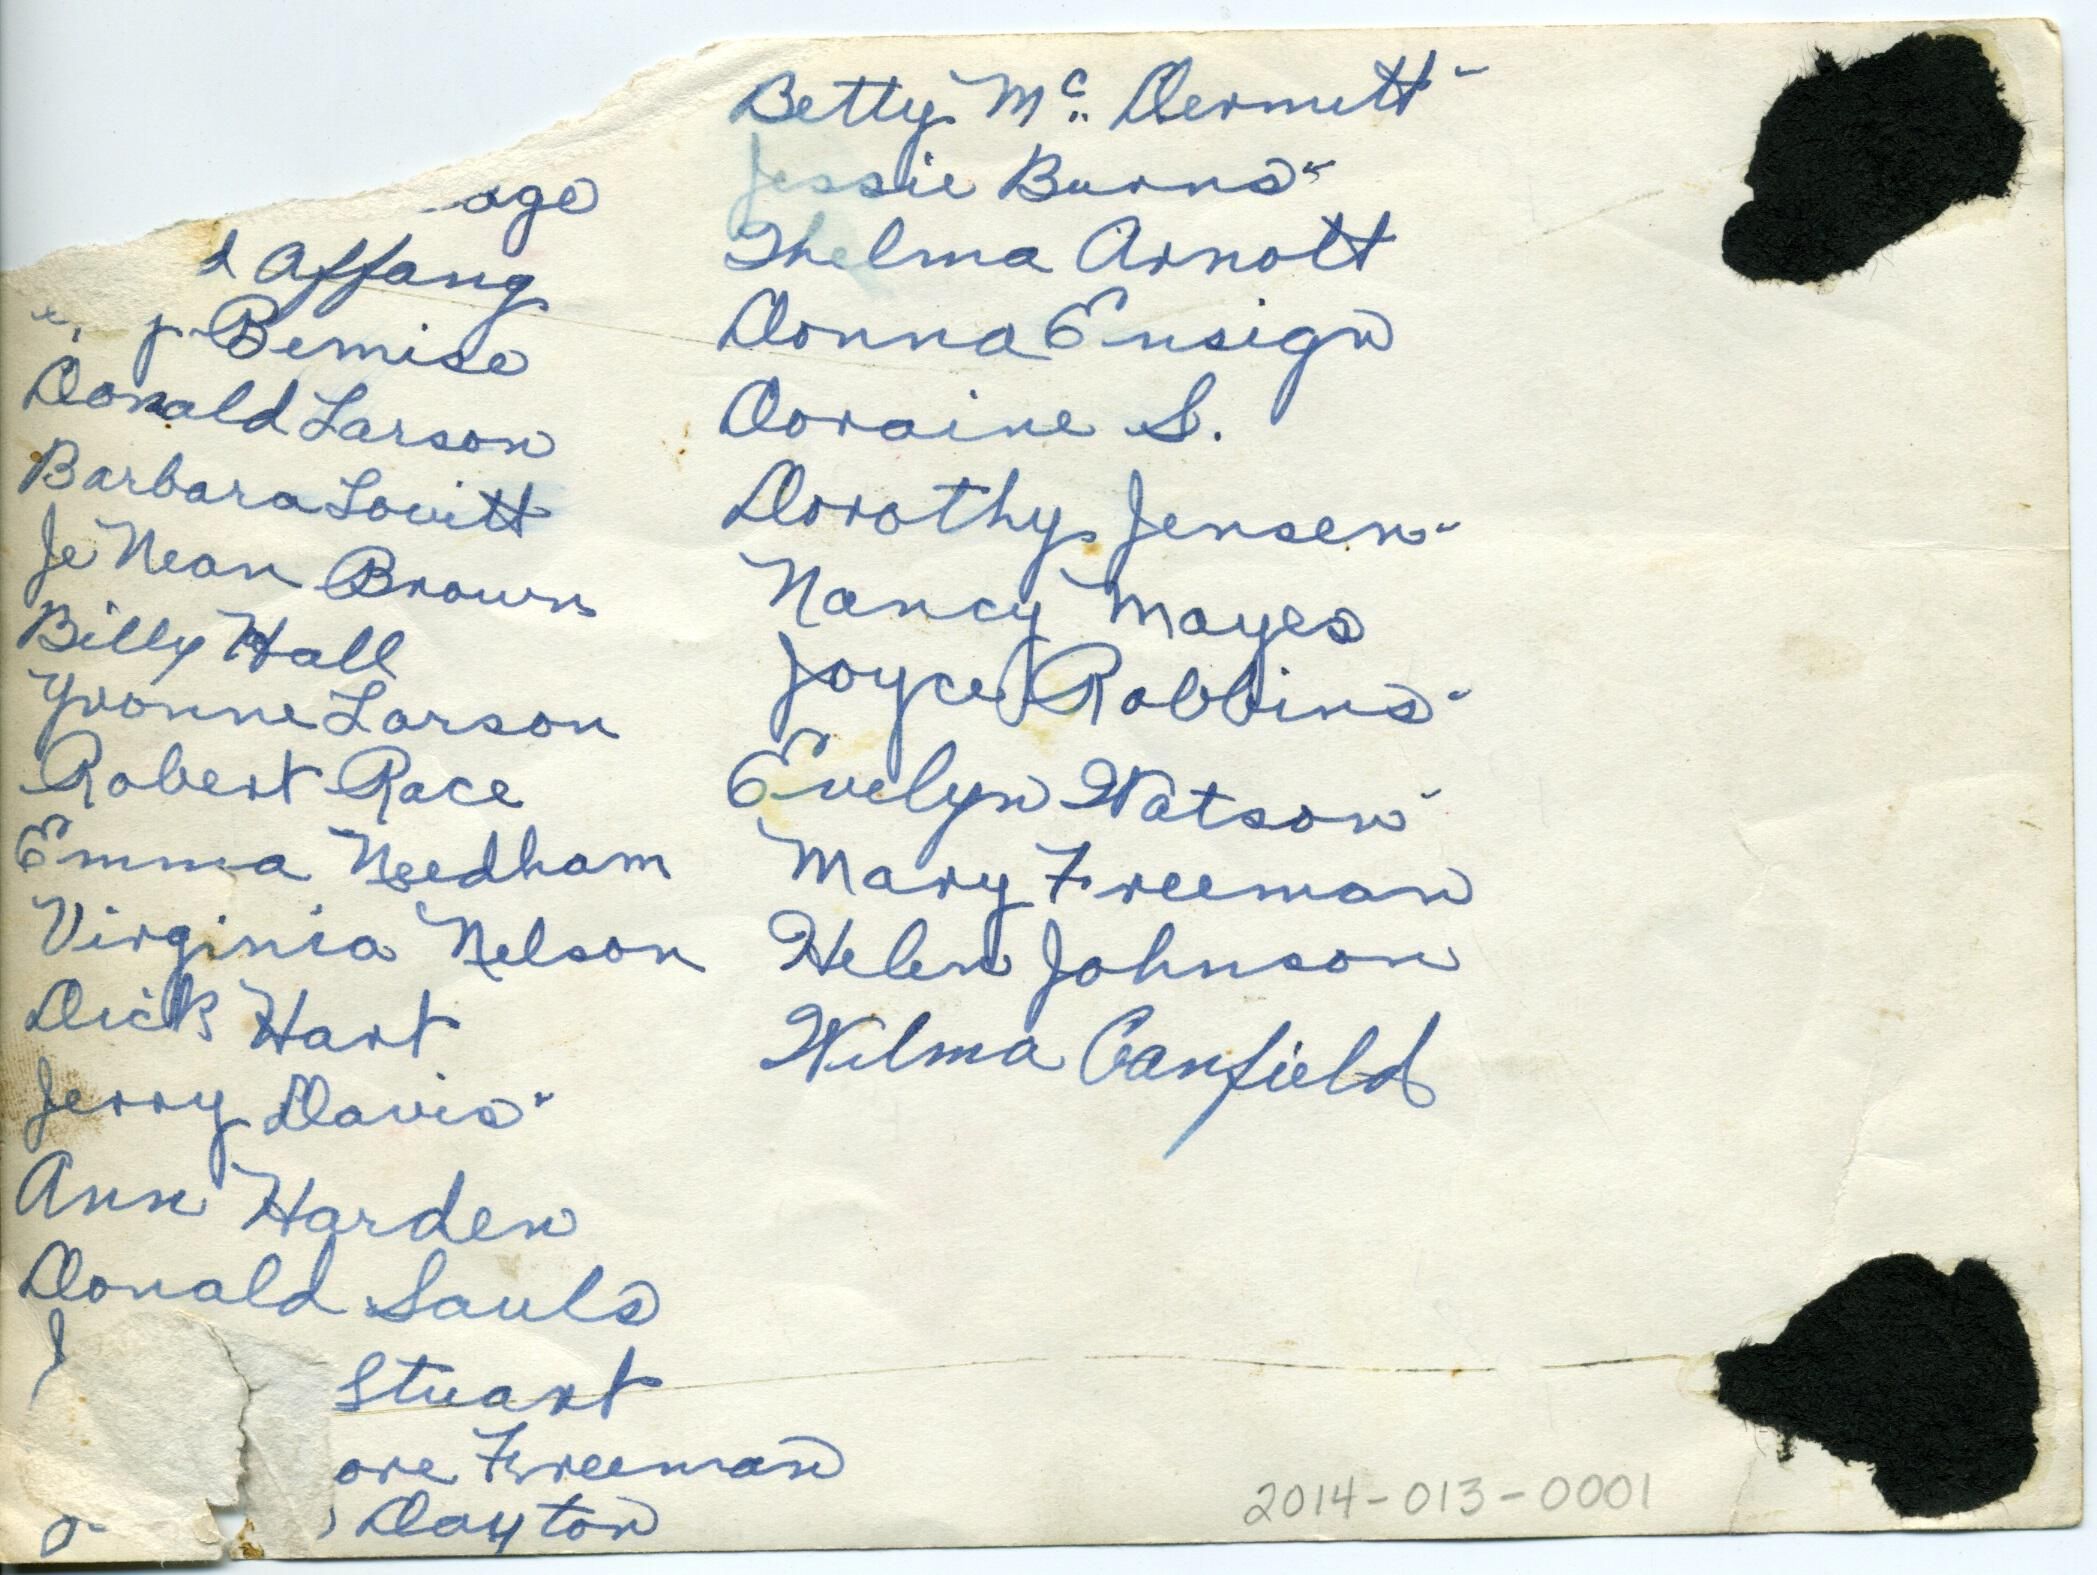 age
d Affang
Bemise
Donald Larson
Barbara Lovitt
Je Nean Brown
Billy Hall
Yvonne Larson
Robert Race
Emma Needham
Virginia Nelson
Dick Hart
Jerry Davis
Ann Harden
Donald Sauls
J Stuart
ore Freeman
Dayton
Betty Mc Dermitt
Jessie Burns
Thelma Arnott
Donna Ensign
Doraine S.
Dorothy Jensen
Nancy Mayes
Joyce Robbins
Evelyn Watson
Mary Freeman
Helen Johnson
Wilma Canfield
2014-013-0001